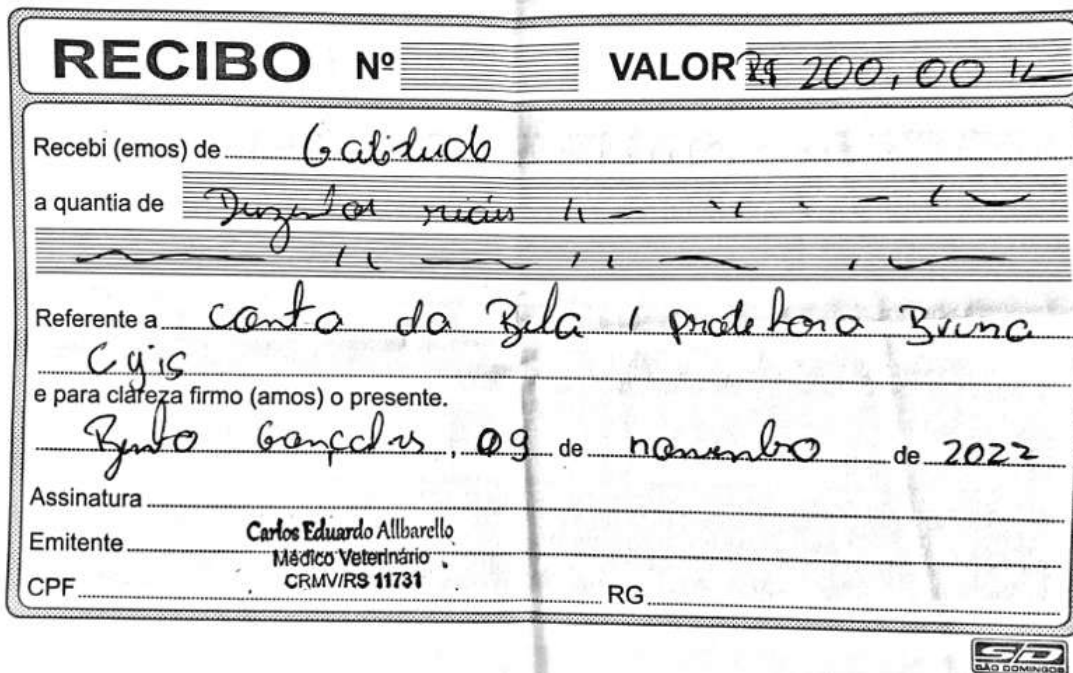 RECIBO Nº VALOR R$ 200,00
Recebi (emos) de Gatitude
a quantia de Duzentos reais
Referente a conta da Bela / protetora Bruna
e para clareza firmo (amos) o presente.
Bento Gonçalves, 09 de novembro de 2022
Assinatura
Emitente Carlos Eduardo Allbarello
Médico Veterinário
CRMV/RS 11731
CPF RG
SD
SÃO DOMINGOS